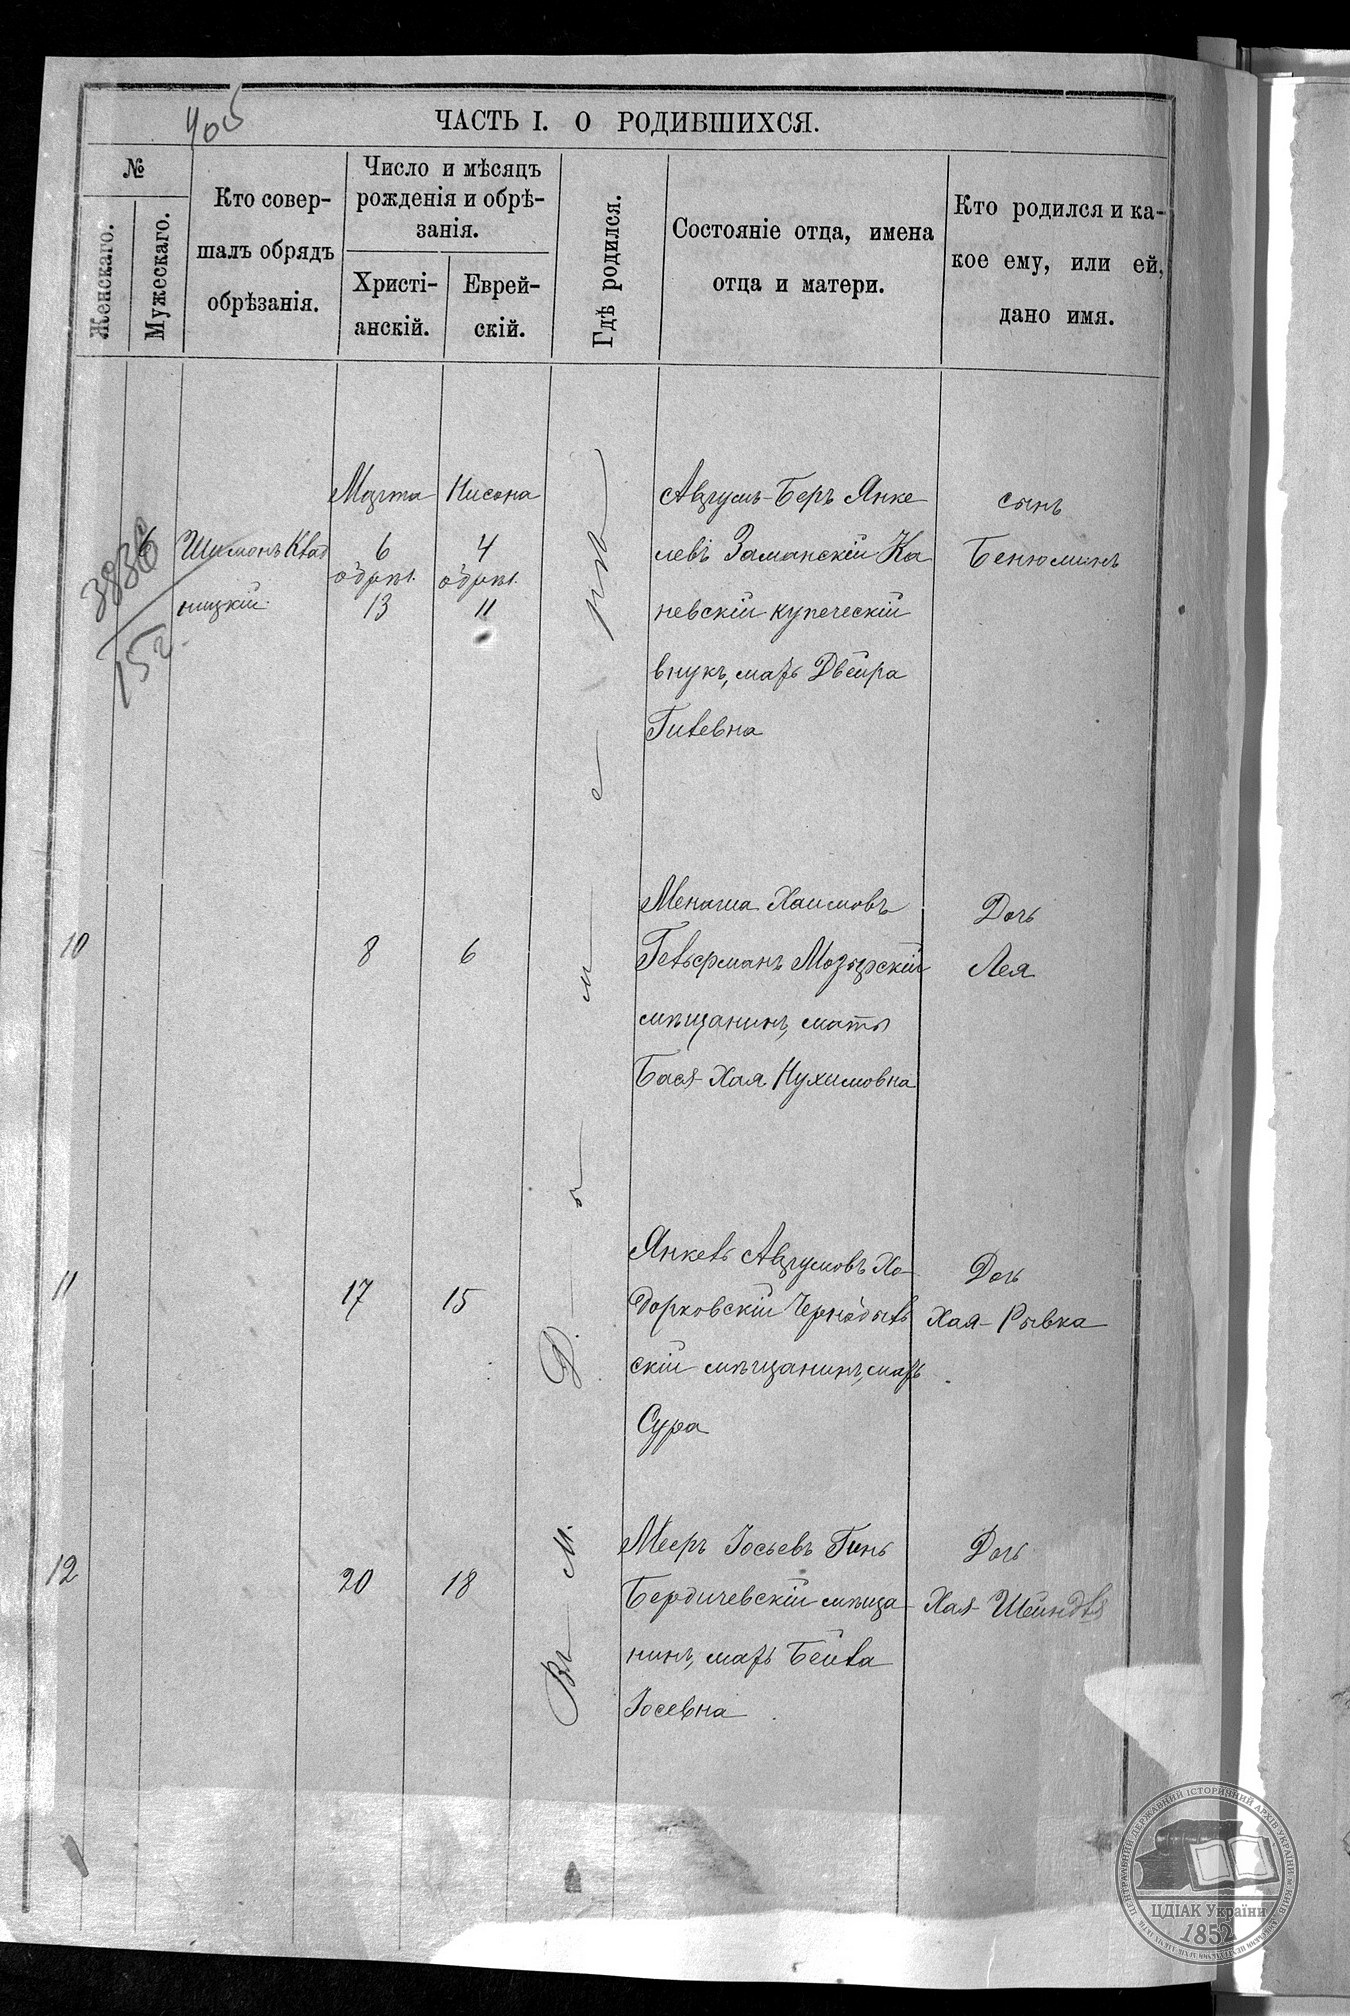 405
ЧАСТЬ I. О РОДИВШИХСЯ.
№
Женскаго.
Мужескаго.
Кто совер-
шалъ обрядъ
обрѣзанія.
Число и мѣсяцъ
рожденія и обрѣ-
занія.
Христі-
анскій.
Еврей-
скій.
Гдѣ родился.
Состояніе отца, имена
отца и матери.
Кто родился и ка-
кое ему, или ей,
дано имя.
Въ М. Дымерѣ
6
Шимонъ Квад
ницкій
Марта
6
обрѣз.
13
Нисона
4
обрѣз.
11
Аврумъ-Беръ Янке
левъ Заманскій Ка
невскій купеческій
внукъ, мать Двейра
Гителевна
сынъ
Бенюминъ
10
8
6
Менаша Хаимовъ
Гельфманъ Мозырскій
мѣщанинъ, мать
Бася-Хая Нухимовна
Дочь
Лея
11
17
15
Янкель Аврумовъ Хо-
дорковскій Чернобыль
скій мѣщанинъ, мать
Сура
Дочь
Хая-Рывка
12
20
18
Мееръ Іосьевъ Гинь
Бердичевскій мѣща-
нинъ, мать Бейла
Іосевна
Дочь
Хая-Шейндля
ЦЕНТРАЛЬНИЙ ДЕРЖАВНИЙ ІСТОРИЧНИЙ АРХІВ УКРАЇНИ М.КИЇВ
ЦДІАК України
1852